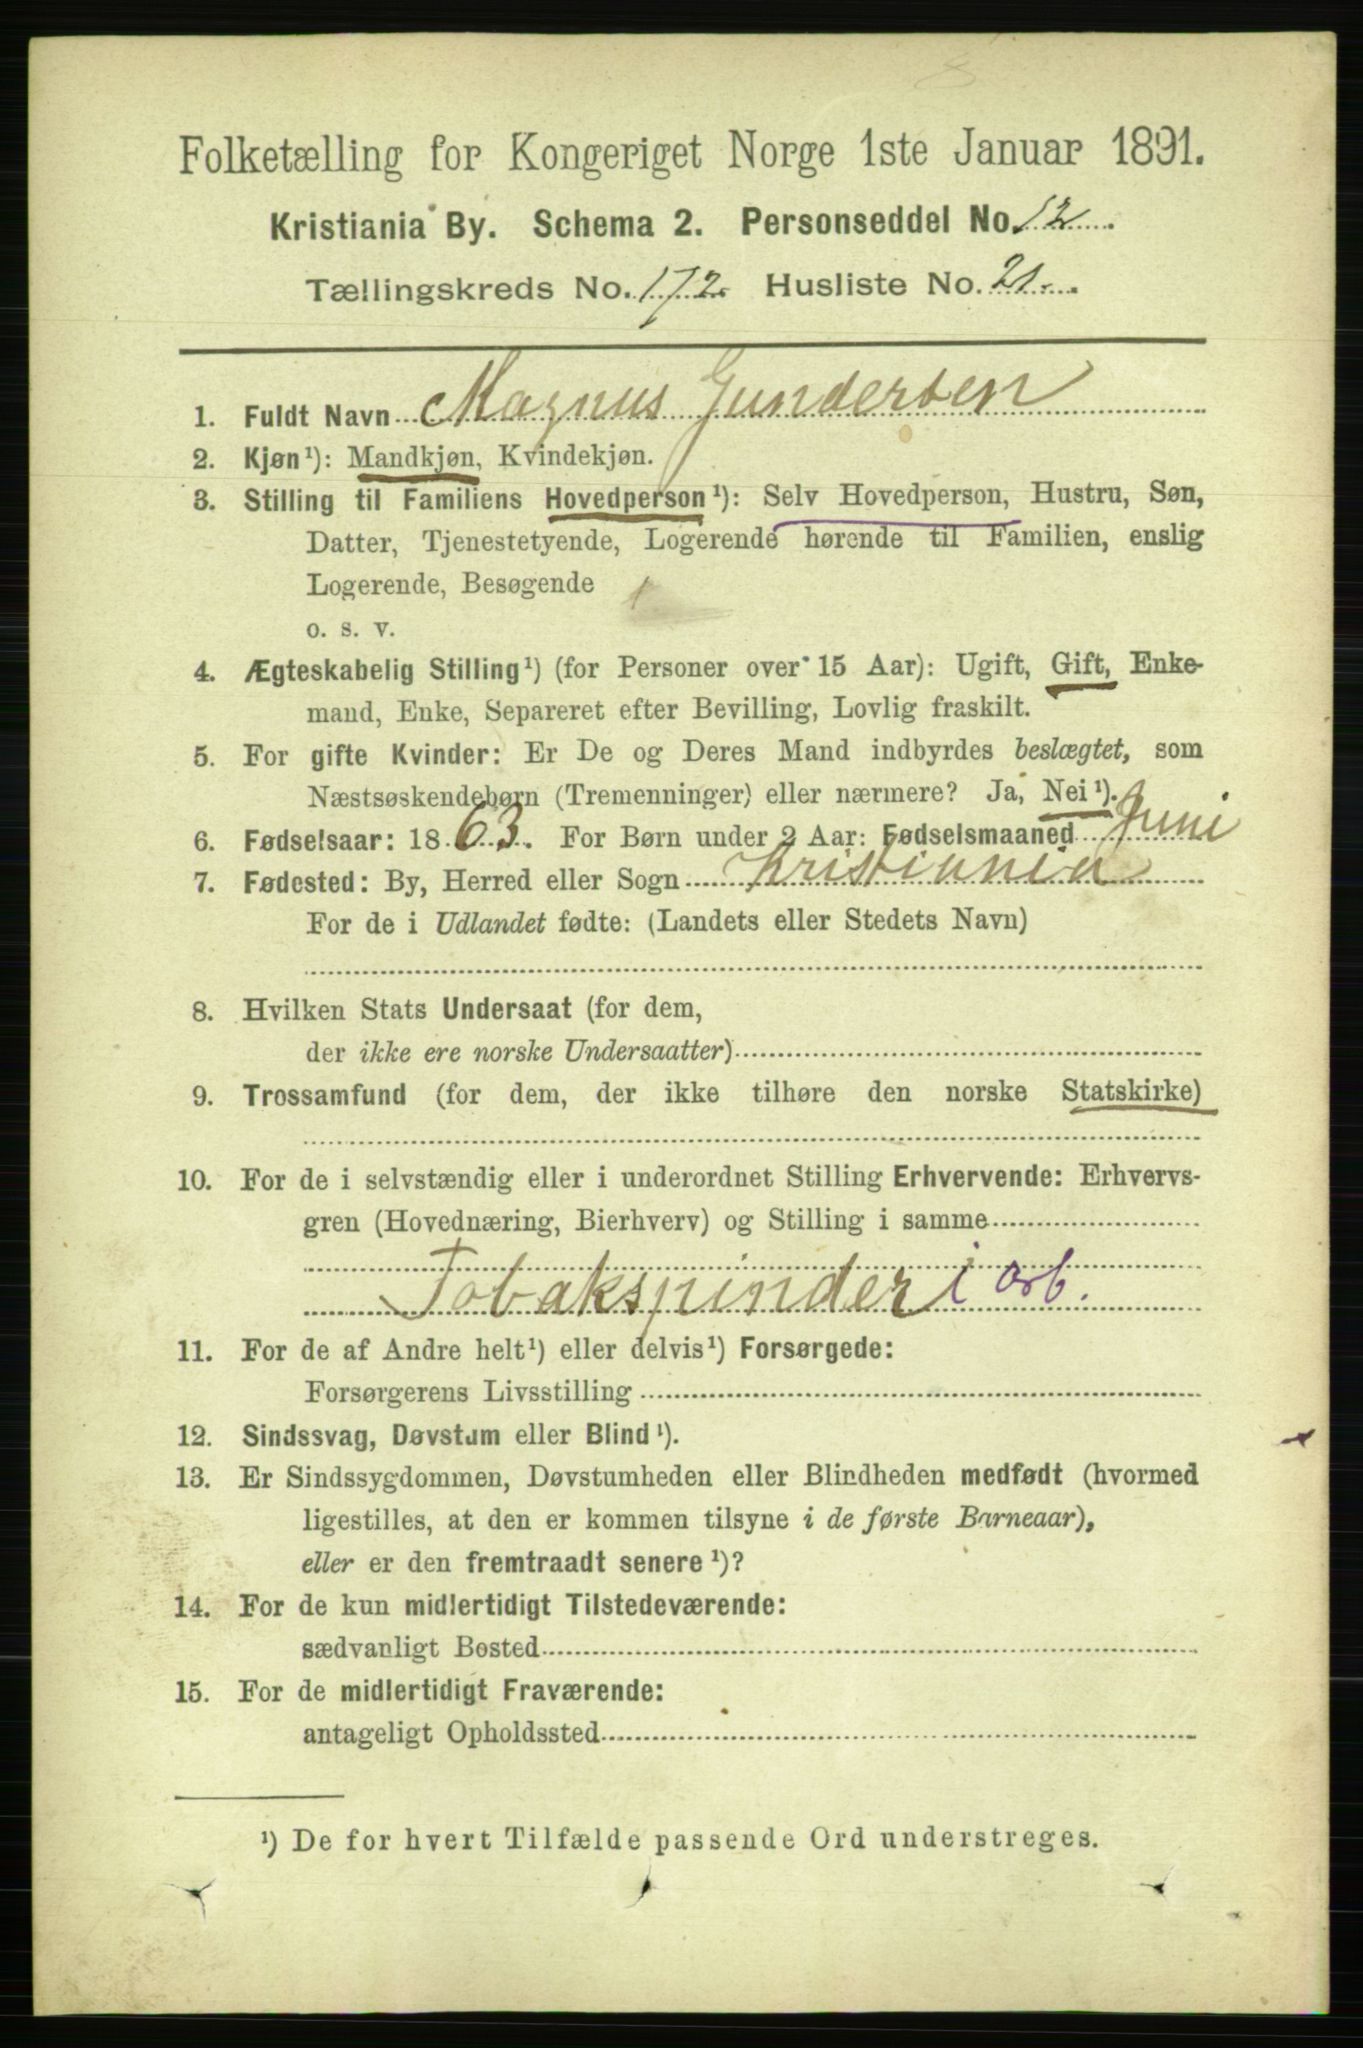 Folketælling for Kongeriget Norge 1ste Januar 1891.
Kristiania By. Schema 2. Personseddel No. 12.
Tællingskreds No. 172. Husliste No. 21.
1. Fuldt Navn Magnus Gundersen
2. Kjøn¹): Mandkjøn, Kvindekjøn.
3. Stilling til Familiens Hovedperson¹): Selv Hovedperson, Hustru, Søn,
Datter, Tjenestetyende, Logerende hørende til Familien, enslig
Logerende, Besøgende
o. s. v.
4. Ægteskabelig Stilling¹) (for Personer over 15 Aar): Ugift, Gift, Enke-
mand, Enke, Separeret efter Bevilling, Lovlig fraskilt.
5. For gifte Kvinder: Er De og Deres Mand indbyrdes beslægtet, som
Næstsøskendebørn (Tremenninger) eller nærmere? Ja, Nei¹).
6. Fødselsaar: 1863. For Børn under 2 Aar: Fødselsmaaned Juni
7. Fødested: By, Herred eller Sogn Kristiania
For de i Udlandet fødte: (Landets eller Stedets Navn)
8. Hvilken Stats Undersaat (for dem,
der ikke ere norske Undersaatter)
9. Trossamfund (for dem, der ikke tilhøre den norske Statskirke)
10. For de i selvstændig eller i underordnet Stilling Erhvervende: Erhvervs-
gren (Hovednæring, Bierhverv) og Stilling i samme
Tobakspinder i arb.
11. For de af Andre helt¹) eller delvis¹) Forsørgede:
Forsørgerens Livsstilling
12. Sindssvag, Døvstum eller Blind¹).
13. Er Sindssygdommen, Døvstumheden eller Blindheden medfødt (hvormed
ligestilles, at den er kommen tilsyne i de første Barneaar),
eller er den fremtraadt senere¹)?
14. For de kun midlertidigt Tilstedeværende:
sædvanligt Bosted
15. For de midlertidigt Fraværende:
antageligt Opholdssted
¹) De for hvert Tilfælde passende Ord understreges.